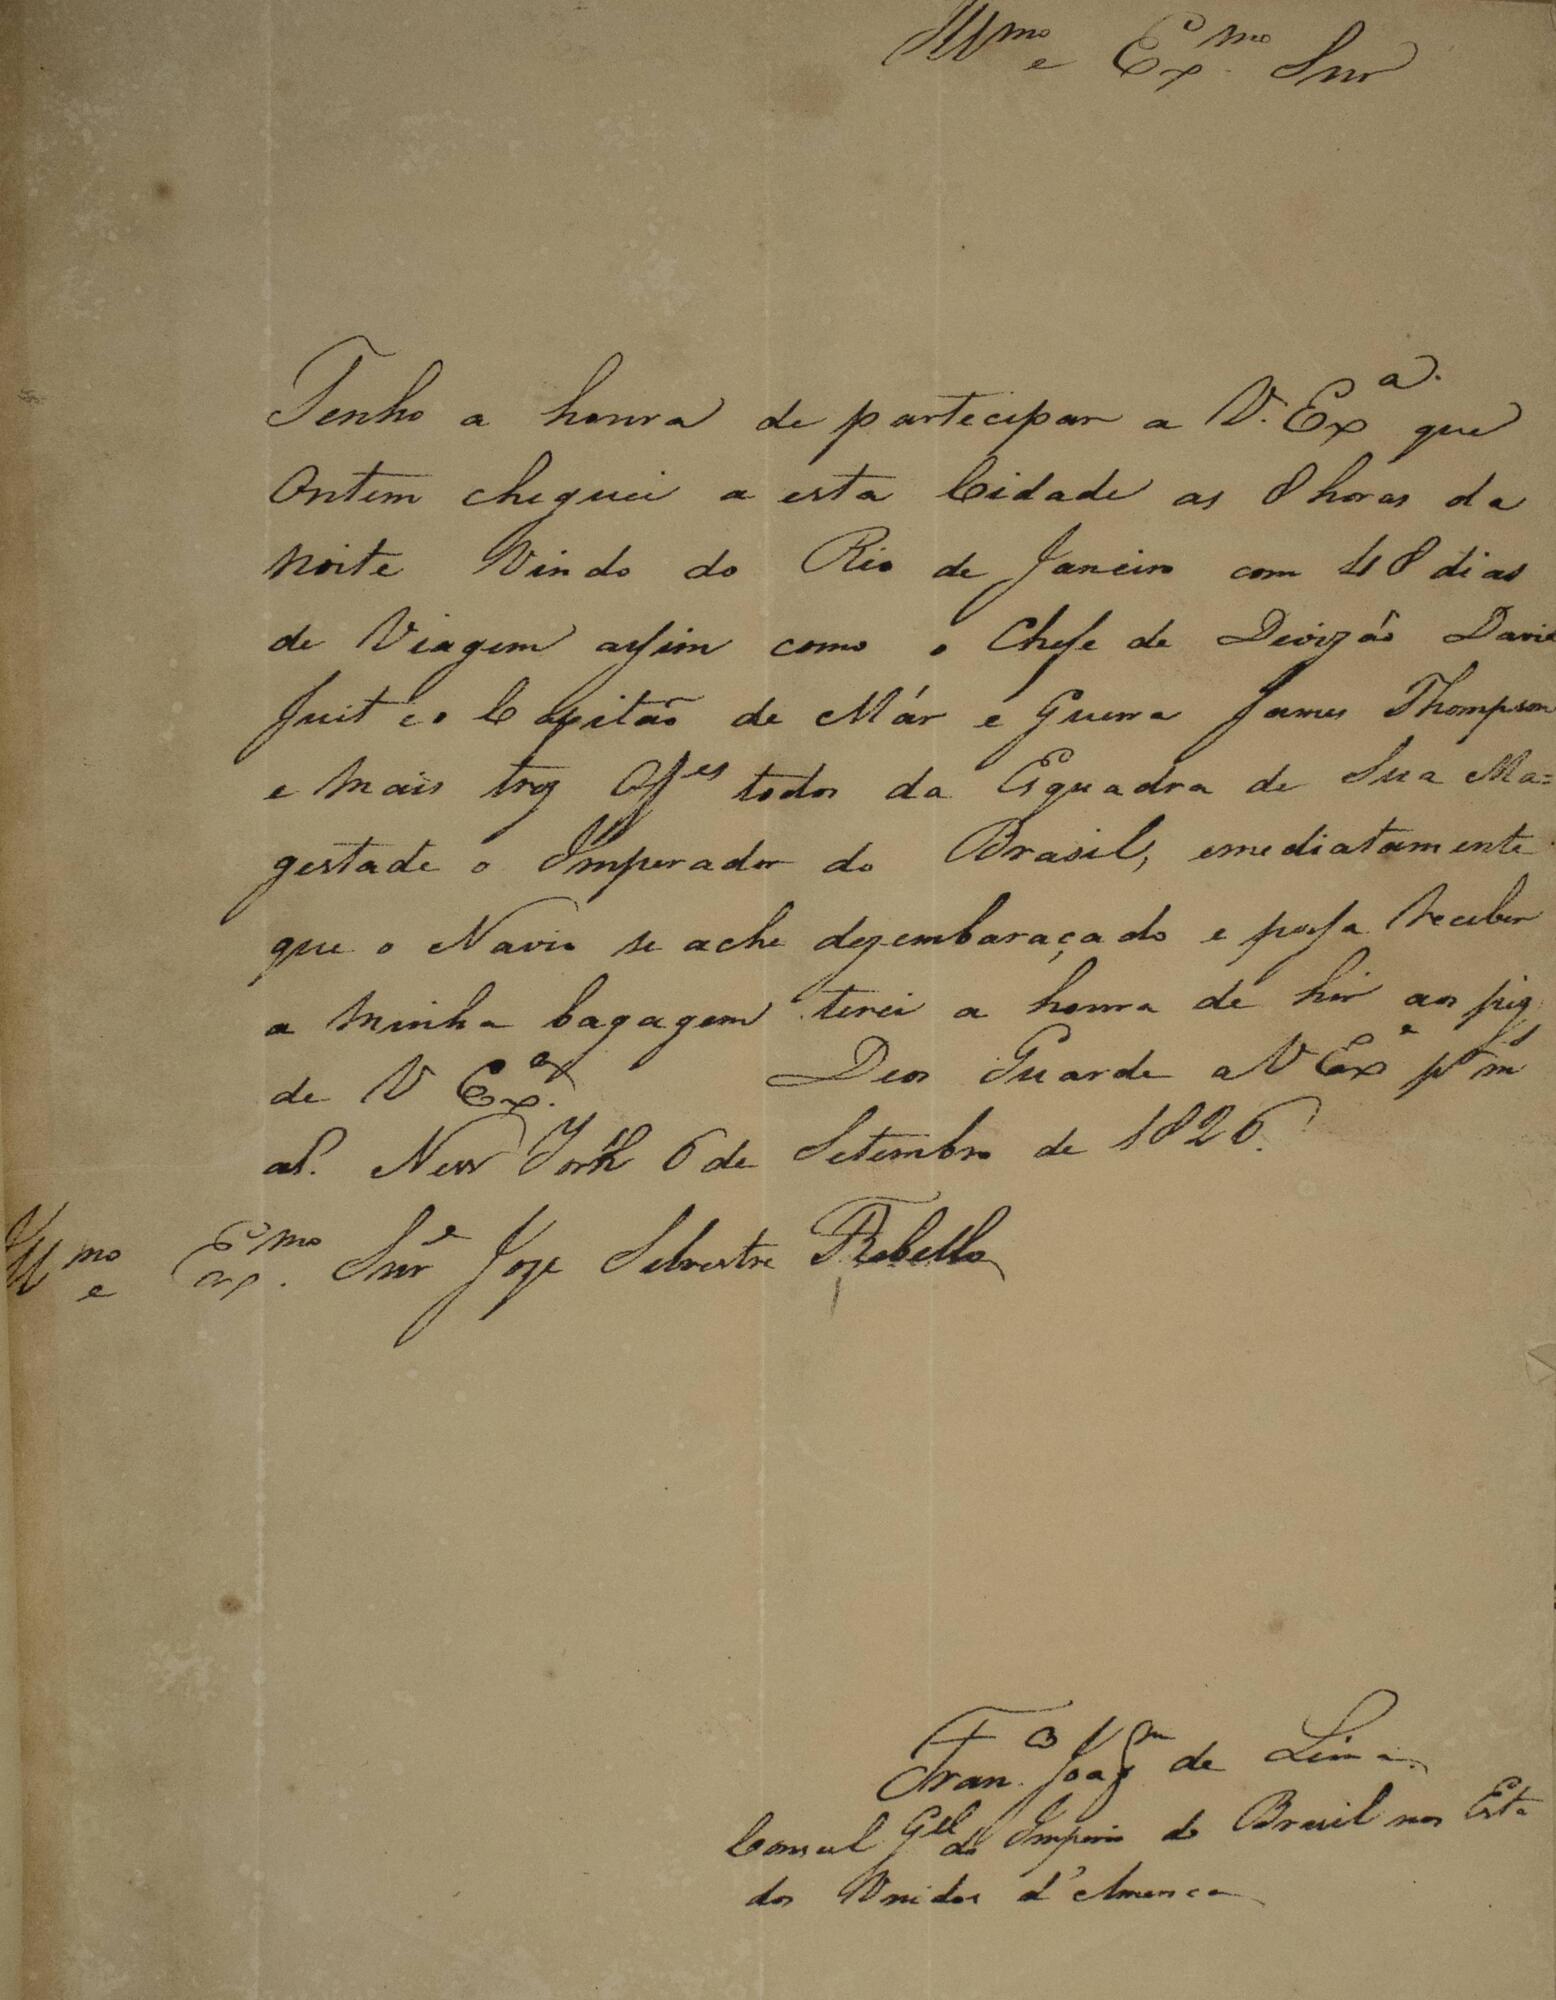 Illmo e Exmo Snr
Tenho a honra de partecipar a V. Exa. que
Ontem cheguei a esta Cidade as 8 horas da
Noite Vindo do Rio de Janeiro com 48 dias
de Viagem assim como o Chefe de Divizão David
Juit e o Capitão de Már e Guerra James Thompson
e mais trez Ofes todos da Esquadra de Sua Ma=
gestade o Imperador do Brasil, emediatamente
que o Navio se ache dezembaraçado e possa receber
a minha bagagem terei a honra de hir aos pez
de V Exa. Deos Guarde a V Exa ps ms
as. New York 6 de Setembro de 1826.
Illmo e Exmo. Snre Joze Selvestre Rebello
Franco. Joaqm de Lima
Consul Gel do Imperio do Brasil nos Esta
dos Unidos d'America